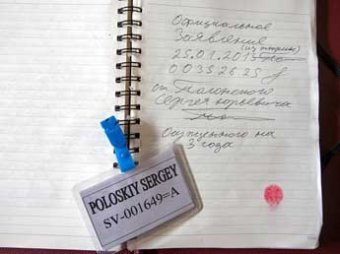 Официальное
Заявление
(из тюрьмы)
25.01.2013
от Полонского
Сергея Юрьевича
на
3 года
POLOSKIY SERGEY
SV-001649=A